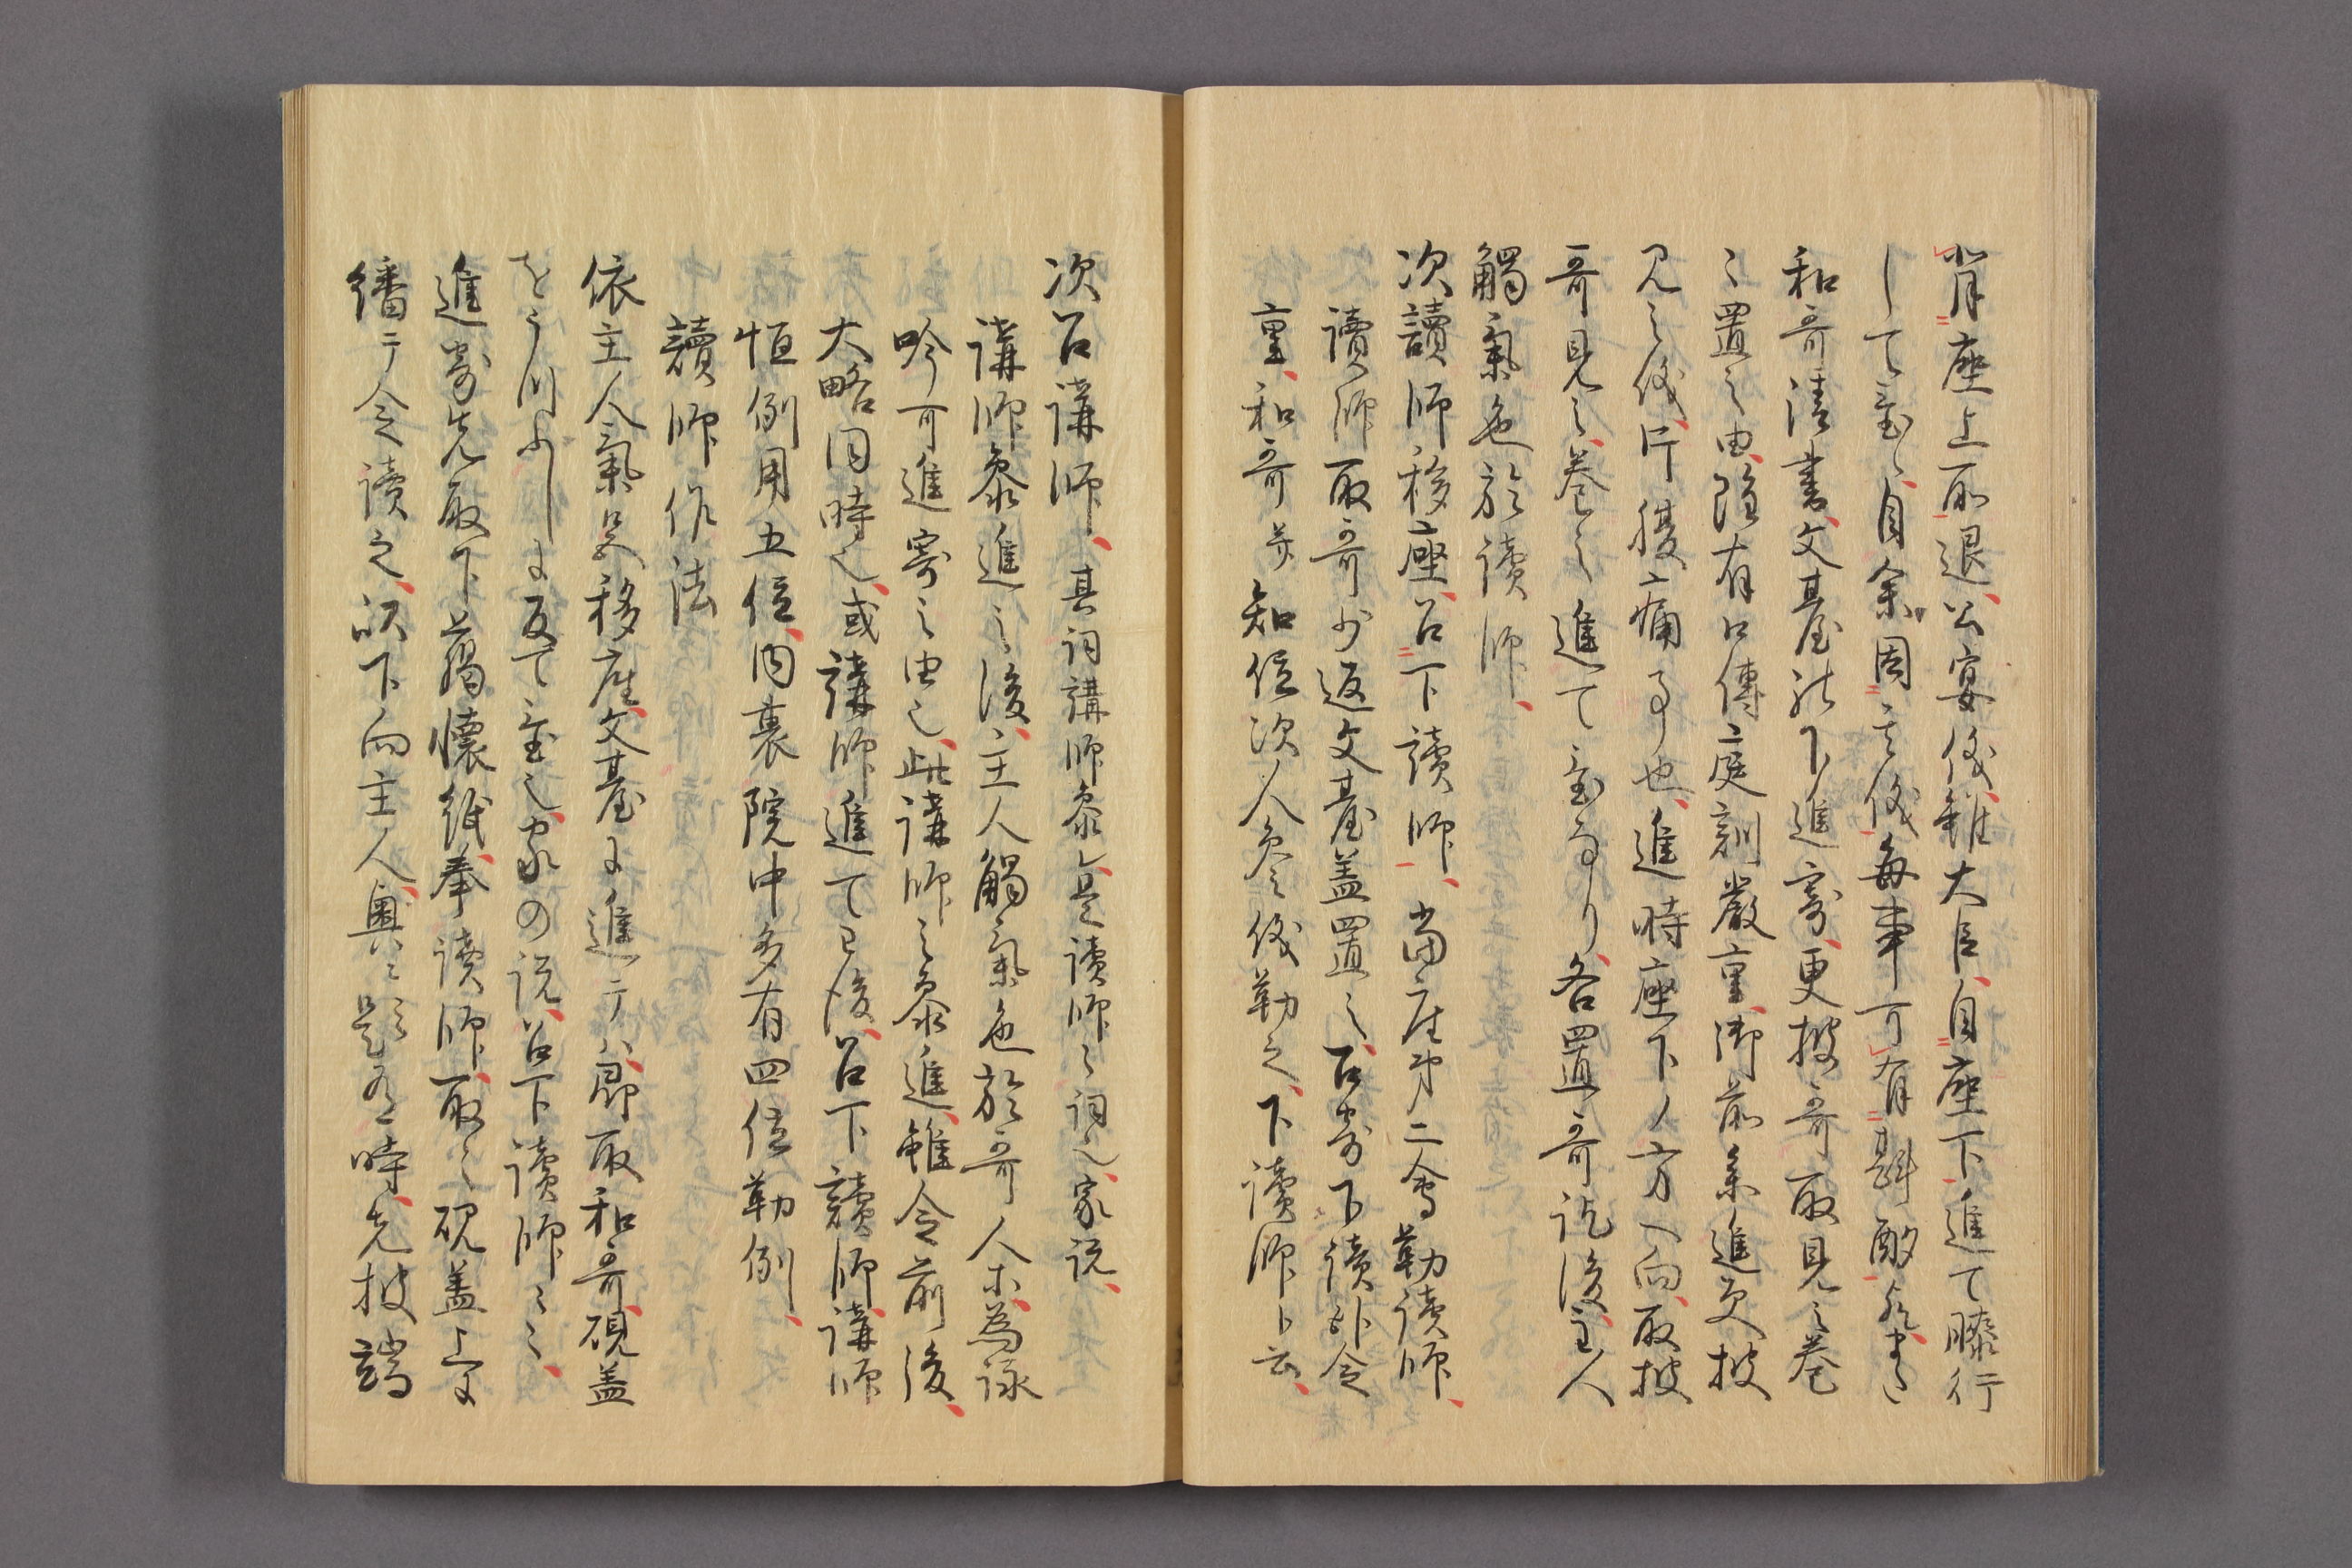 背座上而退、公宴儀雖大臣、自座下進て膝行
して置く、自余因之儀毎事可有斟酌
和哥清書、文基座下進寄、更披哥取見之巻
之置之由、雖有口傳庭訓厳重、御前参進更披
見之儀、片腹痛事也、進時座下ノ方へ向、取披
哥見之、巻之進て置なり、各置哥訖後、主人
觸氣色於讀師、
次讀師移座、召下讀師、當座第二會勤讀師、
讀師取哥少返文臺盖置之、召寄下讀師令
重、和哥並知位次人多儀勤之、下讀師卜云、
次召講師、其詞講師参レ、是讀師之詞也、家説、
講師参進之後、主人觸氣色於哥人ホ、為詠
吟可進寄之由也、此講師之参進、雖令前後、
大略同時也、或講師進て已後、召下讀師、講師
恒例用五位、内裏院中多有四位勤例、
讀師作法
依主人氣色移座、文臺に進テハ、即取和哥硯盖
をうつふしに反て置也、家の説、召下讀師々々、
進寄先取下臈懐紙奉讀師、取之硯盖上に
繙テ令讀之、訳下向主人、輿々影有時、先披講